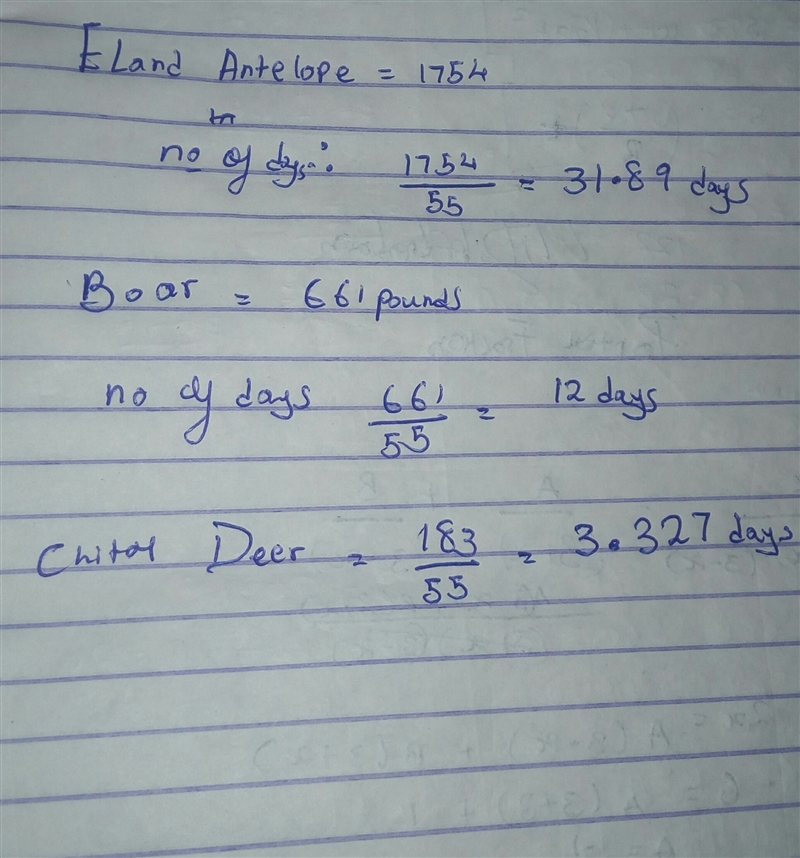 Eland Antelope = 1754
no of days: 1754/55 = 31.89 days
Boar = 661 pounds
no of days 661/55 = 12 days
Chital Deer = 183/55 = 3.327 days